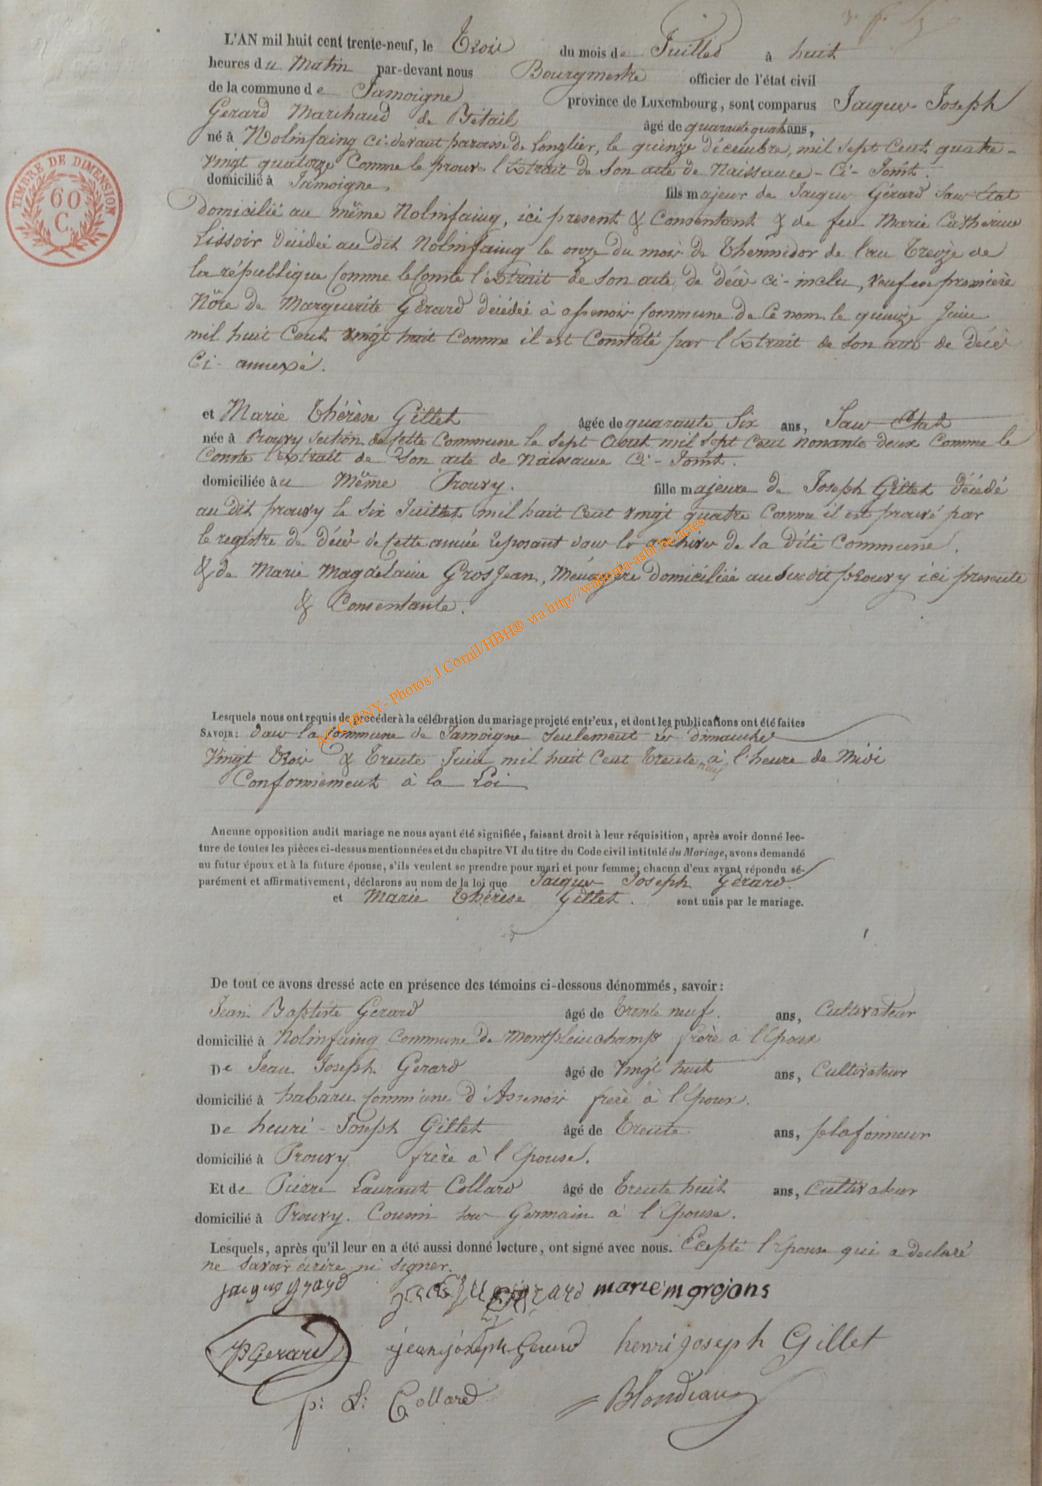 L'AN mil huit cent trente-neuf, le Trois du mois de Juillet à huit
heures du Matin par-devant nous Bourgmestre officier de l'état civil
de la commune de Jamoigne province de Luxembourg, sont comparus Jacques Joseph
Gerard Marchand de Bétail âgé de quarante quatre ans,
né à Nolinfaing ci-devant paroisse de Longlier, le quinze décembre, mil sept Cent quatre-
vingt quatorze Comme le prouve l'Extrait de son acte de Naissance-Ci-Joint.
domicilié à Jamoigne, fils majeur de Jacques Gérard Sans Etat
domicilié au même Nolinfaing, ici présent & Consentant & de feu Marie Catherine
Lissoir décédée au dit Nolinfaing le onze du mois de Thermidor de l'an treize de
la république Comme le Conste l'extrait de son acte de décè ci-inclu, veuf en première
Nôce de Marguerite Gérard décédée à assenois Commune de Ce nom le quinze Juin
mil huit Cent vingt huit Comme il est Constaté par l'Extrait de son acte de décè
Ci-annexé.
et Marie Thérèse Gillet âgée de quarante Six ans, Sans Etat
née à Prouvy Section de Cette Commune le sept août mil sept Cent nonante deux Comme le
Conste l'Extrait de Son acte de Naissance Ci-Joint.
domiciliée au Même Prouvy. fille majeure de Joseph Gillet décédé
au Dit prouvy le six Juillet mil huit Cent vingt quatre Comme il est prouvé par
le registre de décè de Cette année reposant dans les archives de la Dite Commune.
& de Marie Magdelaine GrosJean, Ménagère domiciliée au Susdit prouvy ici présente
& Consentante.
AUCHENY - Photos J.Cornil/HBH® via http://
Lesquels nous ont requis de procéder à la célébration du mariage projeté entr'eux, et dont les publications ont été faites
SAVOIR: dans la Commune de Jamoigne seulement les dimanches
Vingt Trois & Trente Juin mil huit Cent Trente neuf à l'heure de Midi
Conformément à la Loi
Aucune opposition audit mariage ne nous ayant été signifiée, faisant droit à leur réquisition, après avoir donné lec-
ture de toutes les pièces ci-dessus mentionnées et du chapitre VI du titre du Code civil intitulé du Mariage, avons demandé
au futur époux et à la future épouse, s'ils veulent se prendre pour mari et pour femme; chacun d'eux ayant répondu sé-
parément et affirmativement, déclarons au nom de la loi que Jacques Joseph Gérard
et Marie Thérèse Gillet. sont unis par le mariage.
De tout ce avons dressé acte en présence des témoins ci-dessous dénommés, savoir:
Jean Baptiste Gerard âgé de Trente neuf. ans, Cultivateur
domicilié à Nolinfaing Commune de Montpleinchamps frère à l'époux
De Jean Joseph Gerard âgé de Vingt huit ans, Cultivateur
domicilié à habaru Commune d'Assenois frère à l'époux.
De henri-Joseph Gillet âgé de Trente ans, plafonneur
domicilié à Prouvy frère à l'épouse.
Et de Pierre Laurant Collard âgé de Trente huit ans, Cultivateur
domicilié à Prouvy. Cousin sous Germain à l'épouse.
Lesquels, après qu'il leur en a été aussi donné lecture, ont signé avec nous. Ecepté l'épouse qui a déclaré
ne savoir écrire ni signer.
jacques gerard marie m grojans
JB Gerard jean joseph Gerard henri joseph Gillet
p: L: Collard Blondiaux
TIMBRE DE DIMENSION
60
C.